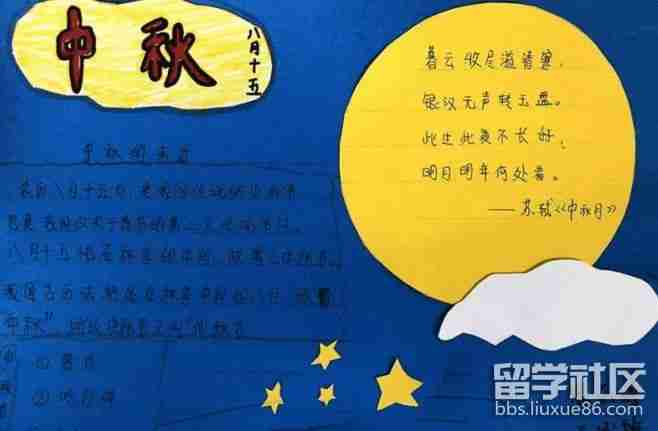 中秋
八月十五
中秋的来历
农历八月十五日,是我国传统的中秋节
也是我国仅次于春节的第二大传统节日。
八月十五恰在秋季的中间,故谓之中秋节。
我国古历法
中秋”
① 赏月
② 吃月饼
暮云收尽溢清寒,
银汉无声转玉盘。
此生此夜不长好,
明月明年何处看。
——苏轼《中秋月》
留学社区
bbs.liuxue86.com